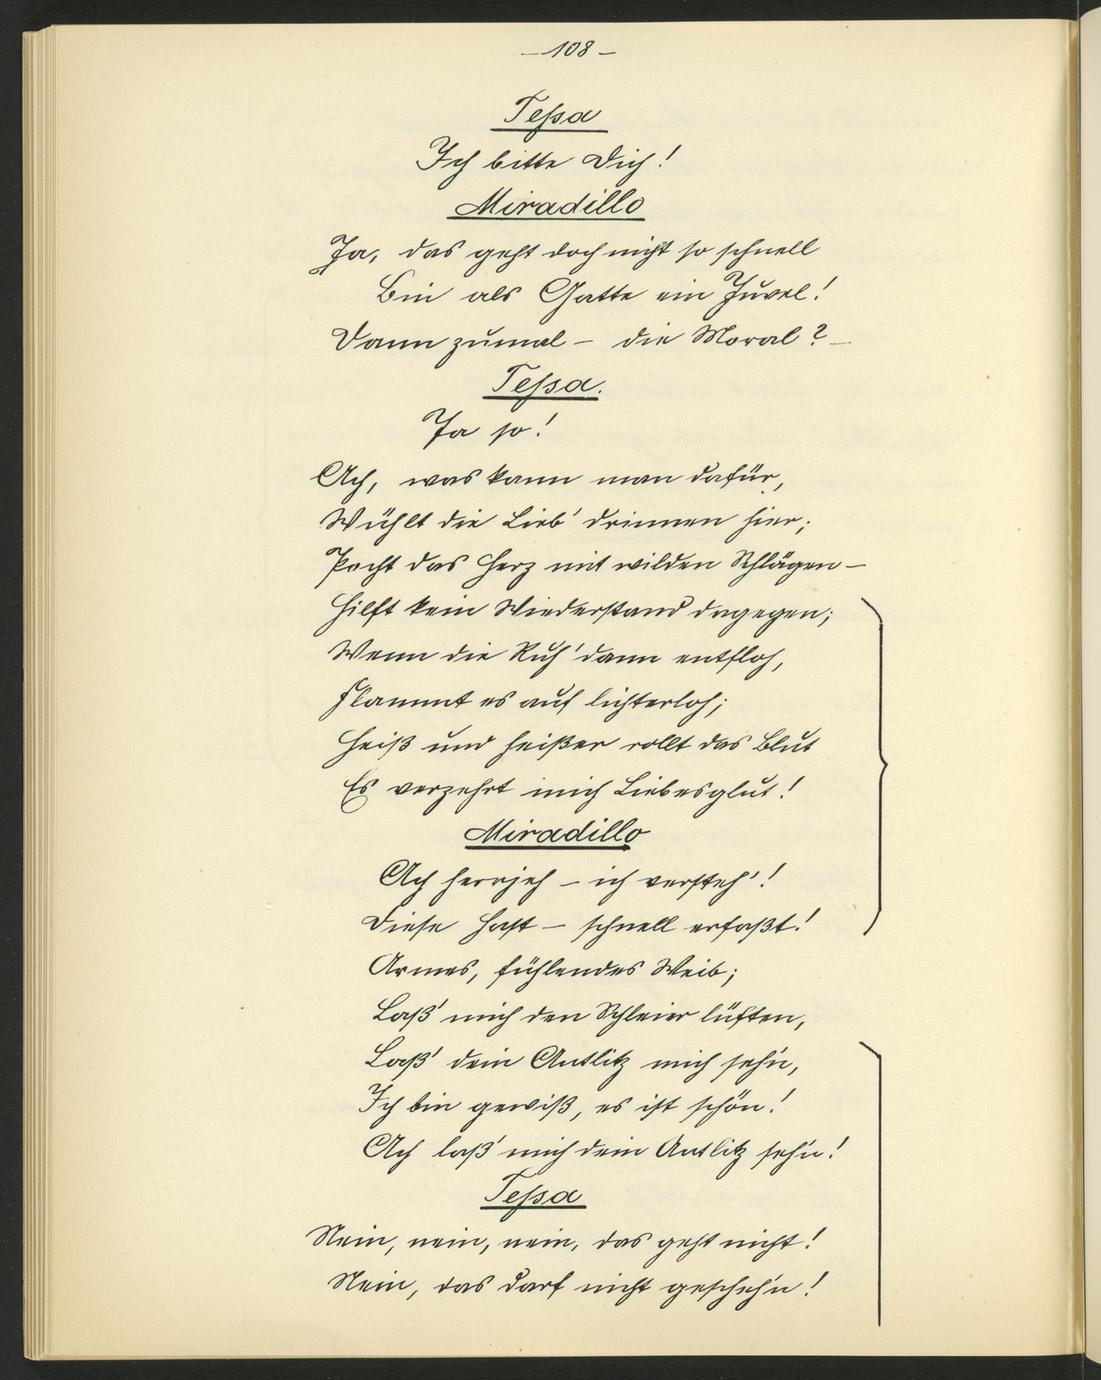 — 108 —
Tessa
Ich bitte Dich!
Miradillo
Ja, das geht doch nicht so schnell
Bin als Gatte ein Juvel!
Dann zumal — die Moral? —
Tessa.
Ja so!
Ach, was kann man dafür,
Wühlt die Lieb' drinnen hier;
Pocht das Herz mit wilden Schlägen —
Hilft kein Wiederstand dagegen;
Wenn die Ruh' dann entfloh,
Flammt es auf lichterloh;
Heiß und heißer rollt das Blut
Es verzehrt mich Liebesglut!
Miradillo
Ach herrjeh — ich versteh'!
Diese Hast — schnell erfaßt!
Armes, fühlendes Weib;
Laß' mich den Schleier lüften,
Laß' dein Antlitz mich seh'n,
Ich bin gewiß, es ist schön!
Ach laß' mich dein Antlitz seh'n!
Tessa
Nein, nein, nein, das geht nicht!
Nein, das darf nicht gescheh'n!